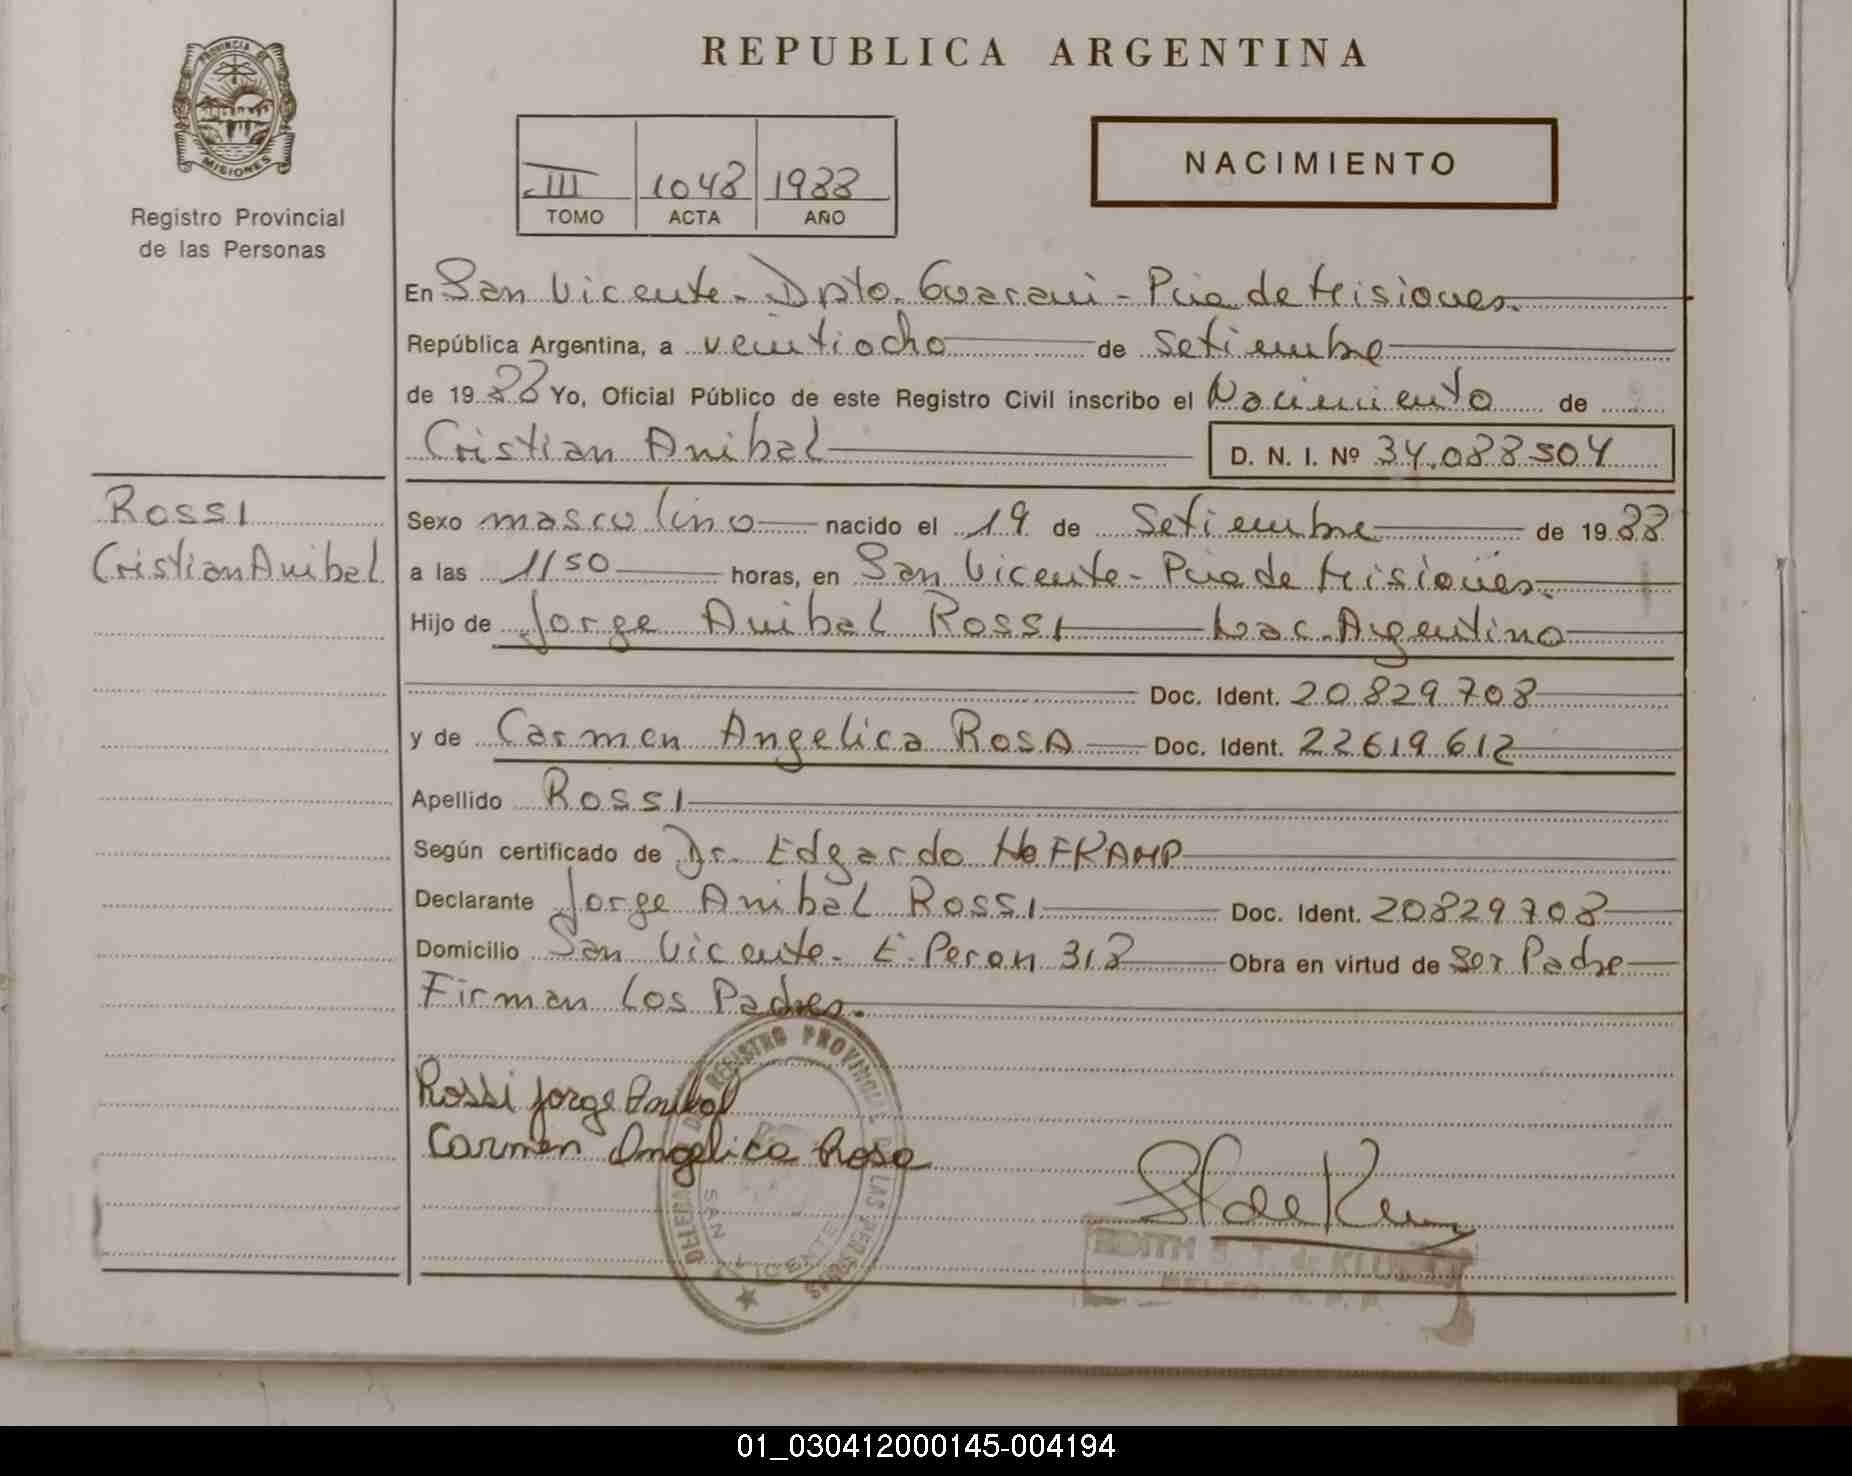 REPUBLICA ARGENTINA
PROVINCIA DE
MISIONES
Registro Provincial
de las Personas
III 1048 1988
TOMO ACTA AÑO
NACIMIENTO
En San Vicente - Dpto. Guarani - Pcia de Misiones.
República Argentina, a veintiocho de Setiembre
de 1988 Yo, Oficial Público de este Registro Civil inscribo el Nacimiento de
Cristian Anibal D. N. I. Nº 34.088504
Rossi
Cristian Anibal
Sexo masculino nacido el 19 de Setiembre de 1988
a las 1150 horas, en San Vicente - Pcia de Misiones.
Hijo de Jorge Anibal Rossi Nac. Argentino
Doc. Ident. 20829708
y de Carmen Angelica Rosa Doc. Ident. 22619612
Apellido Rossi
Según certificado de Dr. Edgardo
Declarante Jorge Anibal Rossi Doc. Ident. 20829708
Domicilio San Vicente - E. Peron 318 Obra en virtud de Ser Padre
Firman Los Padres.
Rossi Jorge Anibal
Carmen Angelica Rosa
REGISTRO PROVINCIAL DE LAS PERSONAS
SAN VICENTE
EDITH T. de
01_030412000145-004194